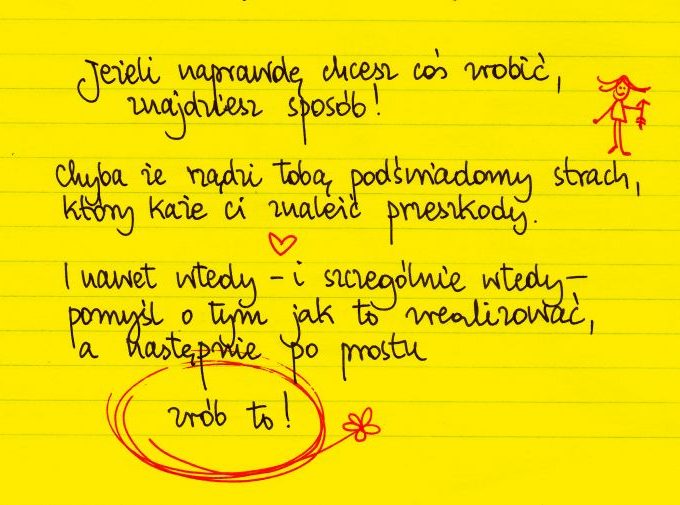 Jeżeli naprawdę chcesz coś zrobić,
znajdziesz sposób!
Chyba że rządzi tobą podświadomy strach,
który każe ci znaleźć przeszkody.
I nawet wtedy – i szczególnie wtedy –
pomyśl o tym jak to zrealizować,
a następnie po prostu
zrób to!